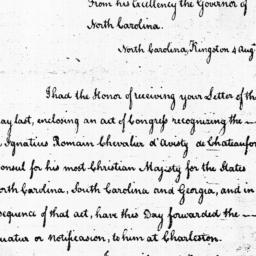 From his Excellency the Governor of
North Carolina.
North Carolina, Kingston 4 Aug
I had the Honor of receiving your Letter of th
ay last, enclosing an act of Congress recognizing the —
Ignatius Romain Chevalier d'Avisty de Chateaufor
onsul for his most Christian Majesty for the States
orth Carolina, South Carolina and Georgia, and in
sequence of that act, have this Day forwarded the —
uatur or notification, to him at Charleston.